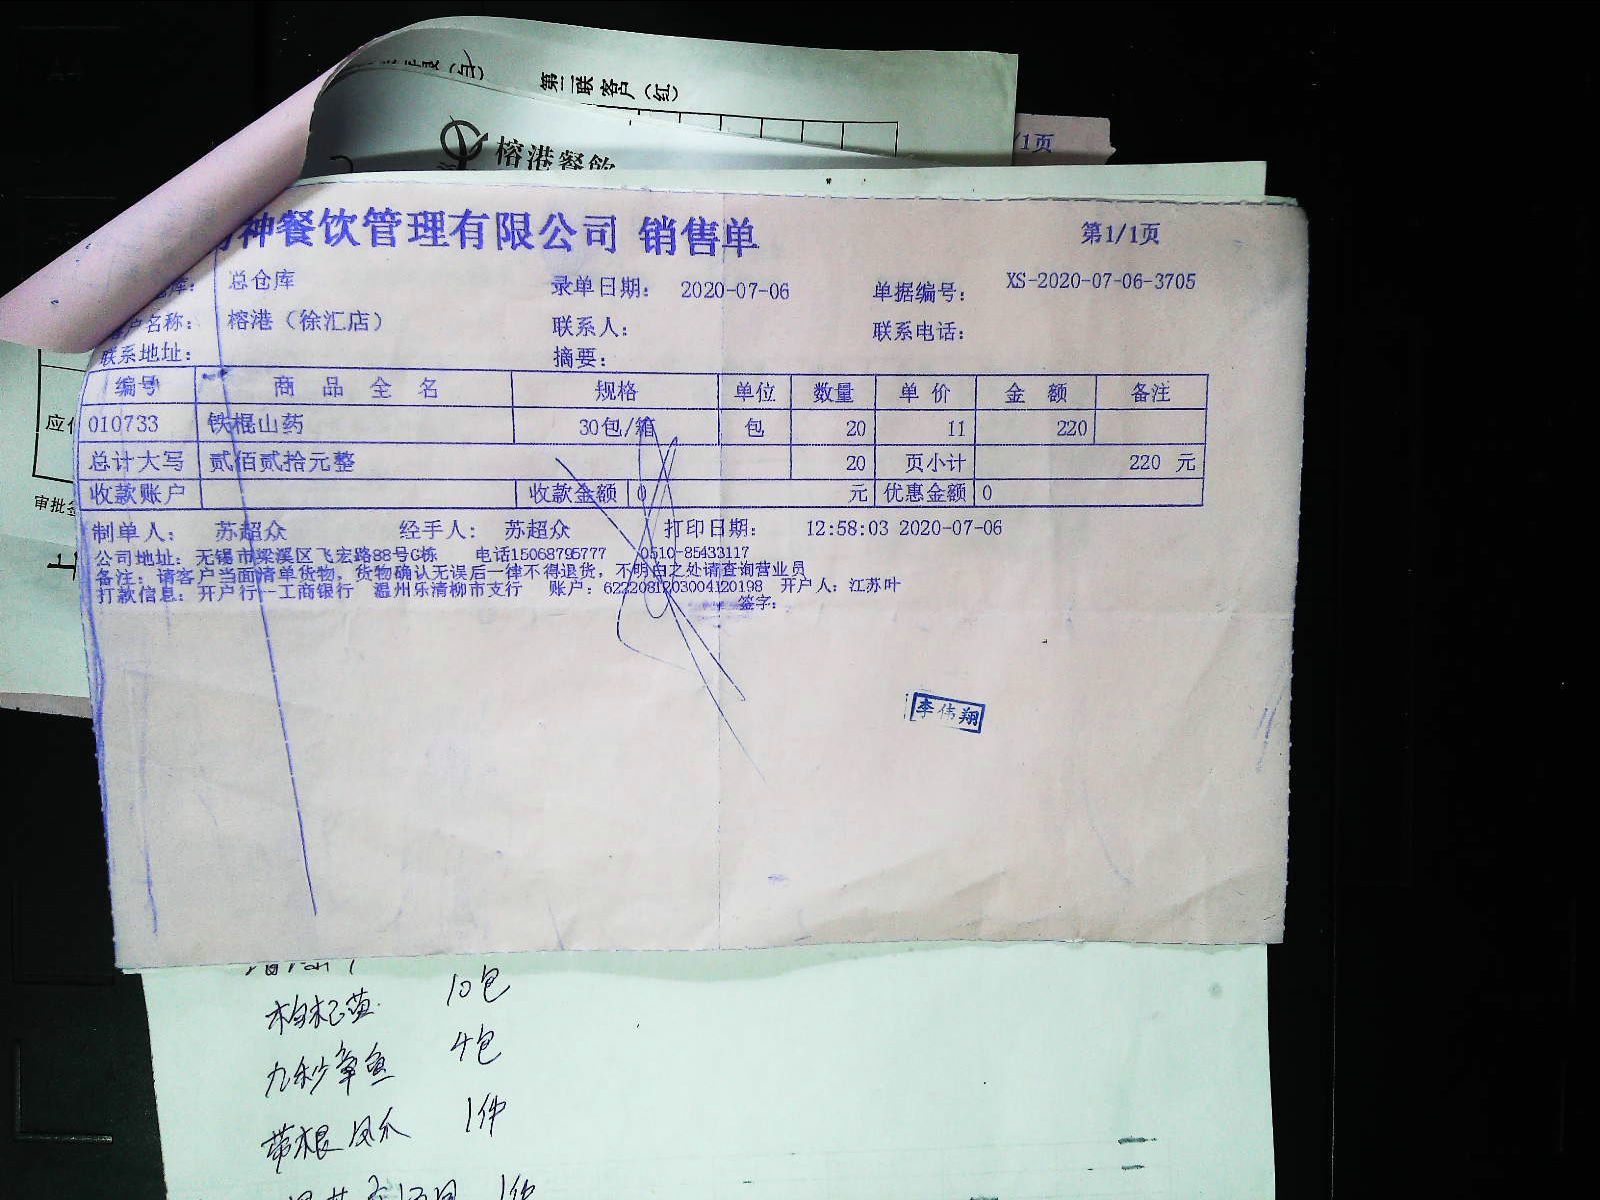 第二联客户（红）
榕港餐飲
/1页
神餐饮管理有限公司 销售单 第1/1页
库： 总仓库 录单日期： 2020-07-06 单据编号： XS-2020-07-06-3705
客户名称： 榕港（徐汇店） 联系人： 联系电话：
联系地址： 摘要：
编号 商品全名 规格 单位 数量 单价 金额 备注
010733 铁棍山药 30包/箱 包 20 11 220
总计大写 贰佰贰拾元整 20 页小计 220 元
收款账户 收款金额 0 元 优惠金额 0
制单人： 苏超众 经手人： 苏超众 打印日期： 12:58:03 2020-07-06
公司地址：无锡市梁溪区飞宏路88号G栋 电话15068795777 0510-85433117
备注：请客户当面清单货物，货物确认无误后一律不得退货，不明白之处请查询营业员
打款信息：开户行--工商银行 温州乐清柳市支行 账户：6222081203004120198 开户人：江苏叶
签字：
李伟翔
应付
审批签
10包
九秒章鱼 4包
带根凤爪 1件
1件